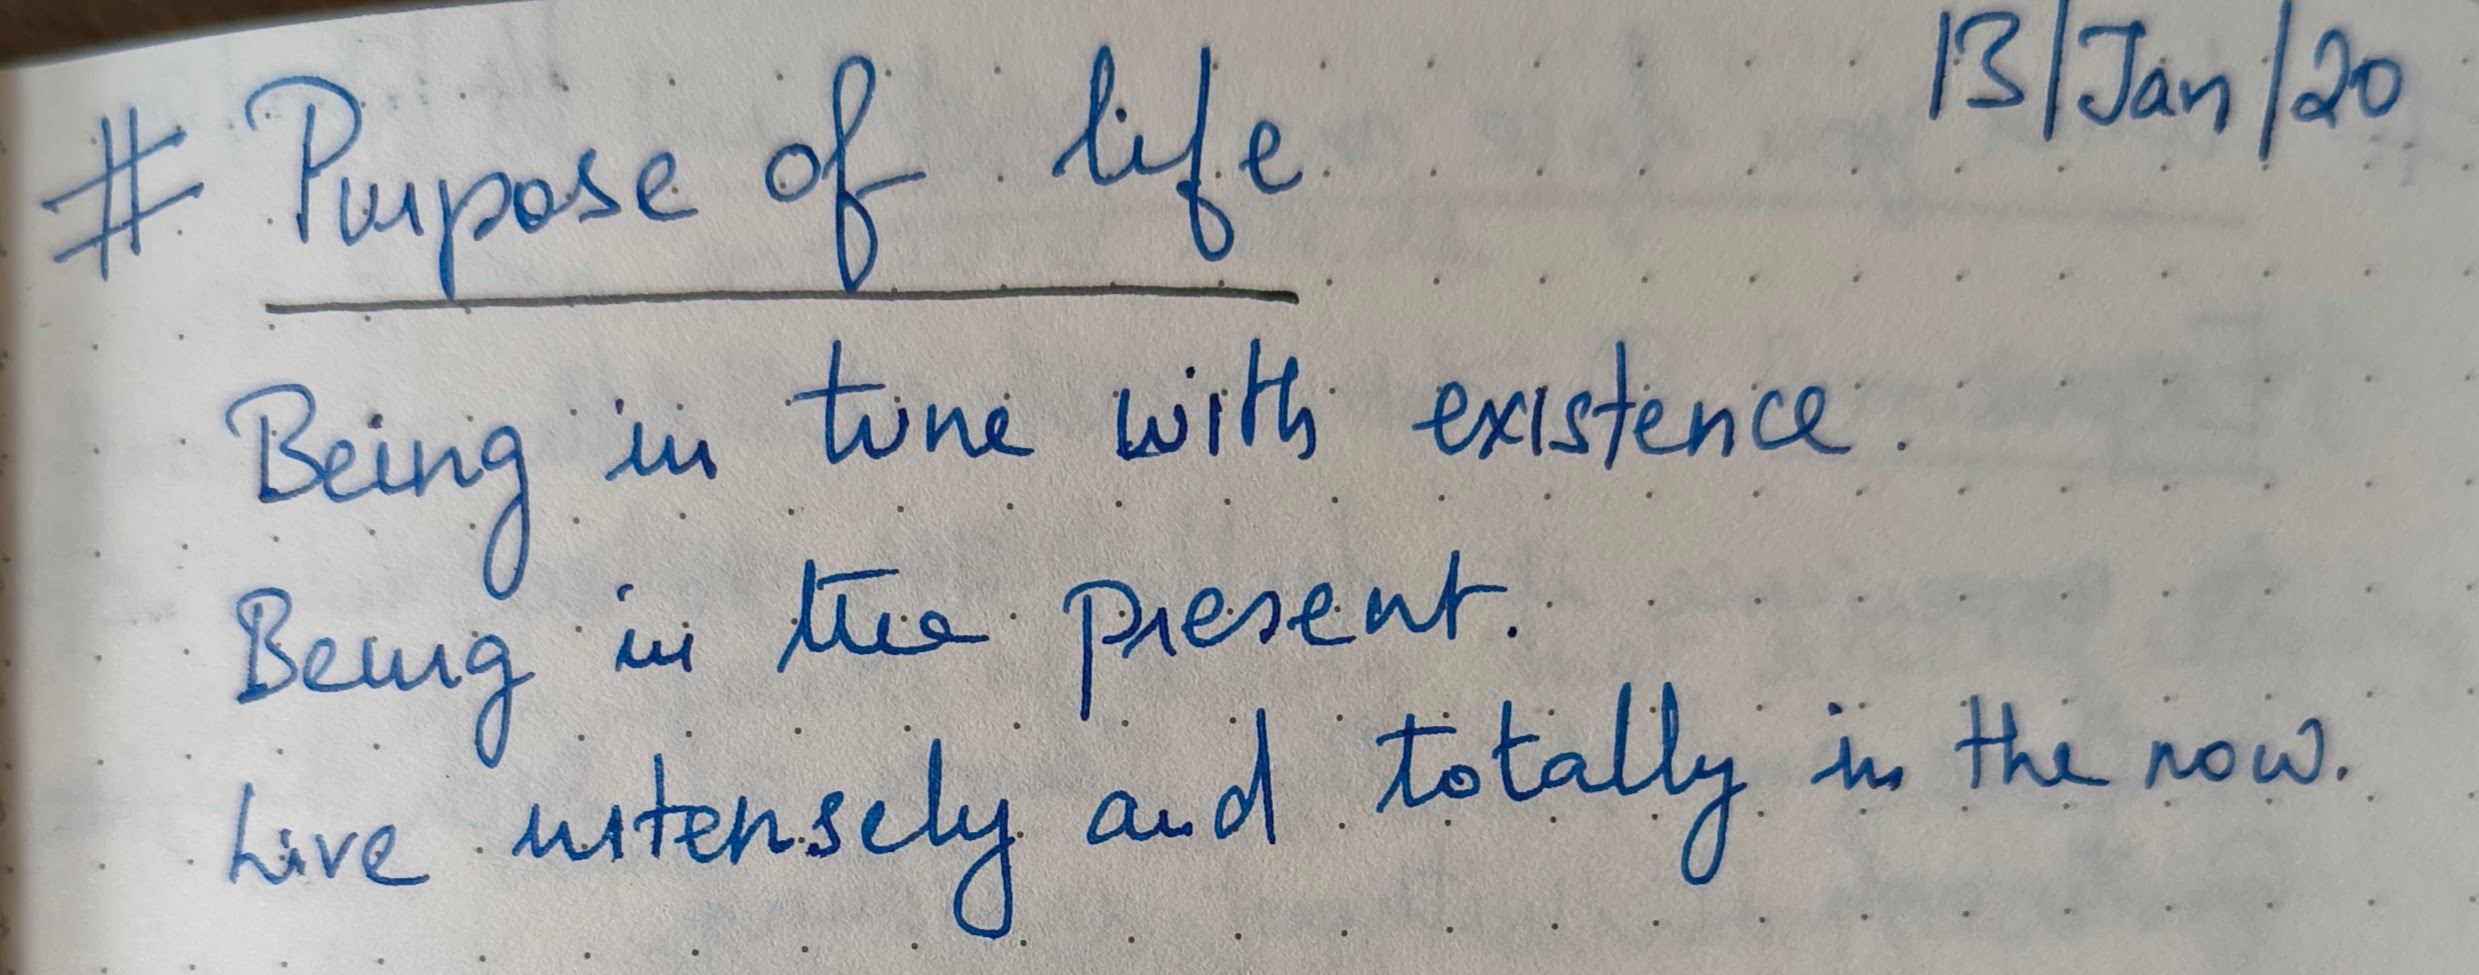 # Purpose of life 13/Jan/20
Being in tune with existence.
Being in the present.
Live intensely and totally in the now.